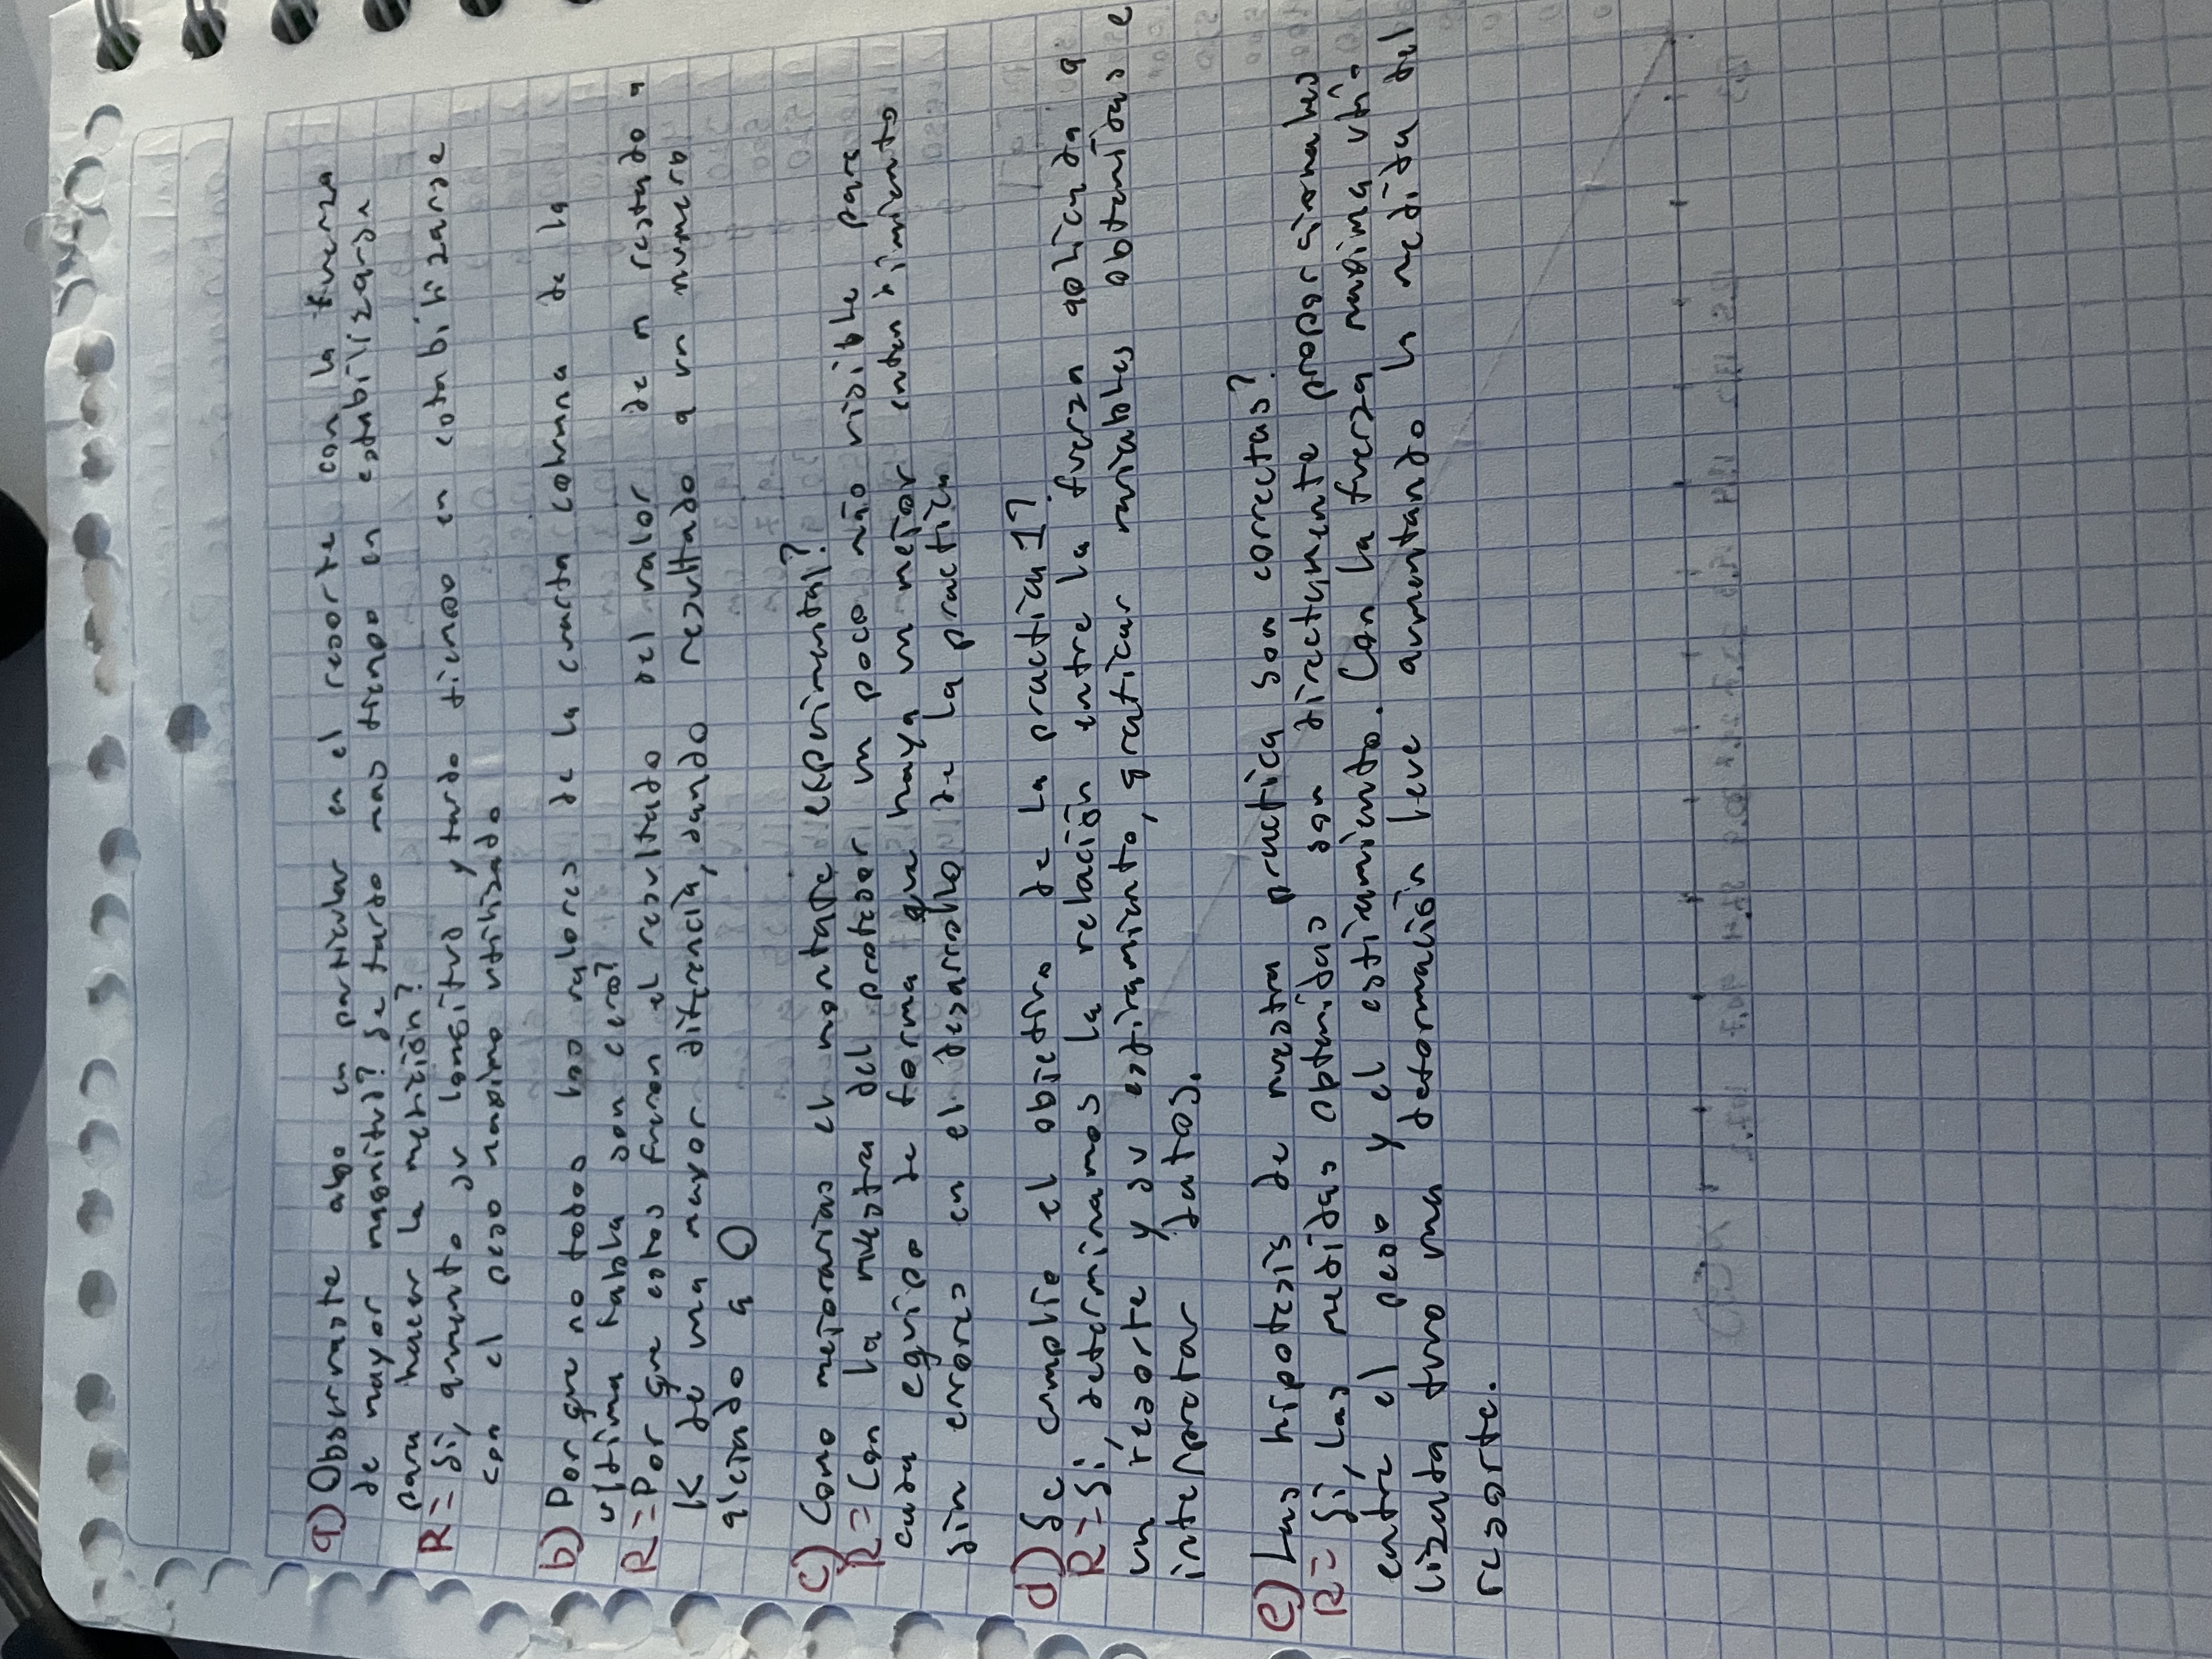 a) Observaste algo en particular en el resorte con la fuerza
de mayor magnitud? Se tardo mas tiempo en estabilizarse
para hacer la medición?
R= Si, aumento su longitud y tardo tiempo en estabilizarse
con el peso maximo utilizado
b) Por que no todos los valores de la cuarta columna de la
ultima tabla son cero?
R= Por que estos fueron el resultado del valor de m restado a
K de una mayor diferencia, dando resultado a un numero
alejado a 0
c) Como mejorarias el montaje experimental?
R= Con la muestra del profesor un poco más visible para
cada equipo de forma que haya un mejor entendimiento
sin errores en el desarrollo de la practica
d) Se cumplio el objetivo de la practica 1?
R= Si, determinamos la relación entre la fuerza aplicada a
un resorte y su estiramiento, graficar variables obtenidas e
interpretar datos.
e) Las hipotesis de nuestra practica son correctas?
R= Si, Las medidas obtenidas son directamente proporcionales
entre el peso y el estiramiento. Con la fuerza maxima uti-
lizada tuvo una deformación leve aumentando la medida del
resorte.